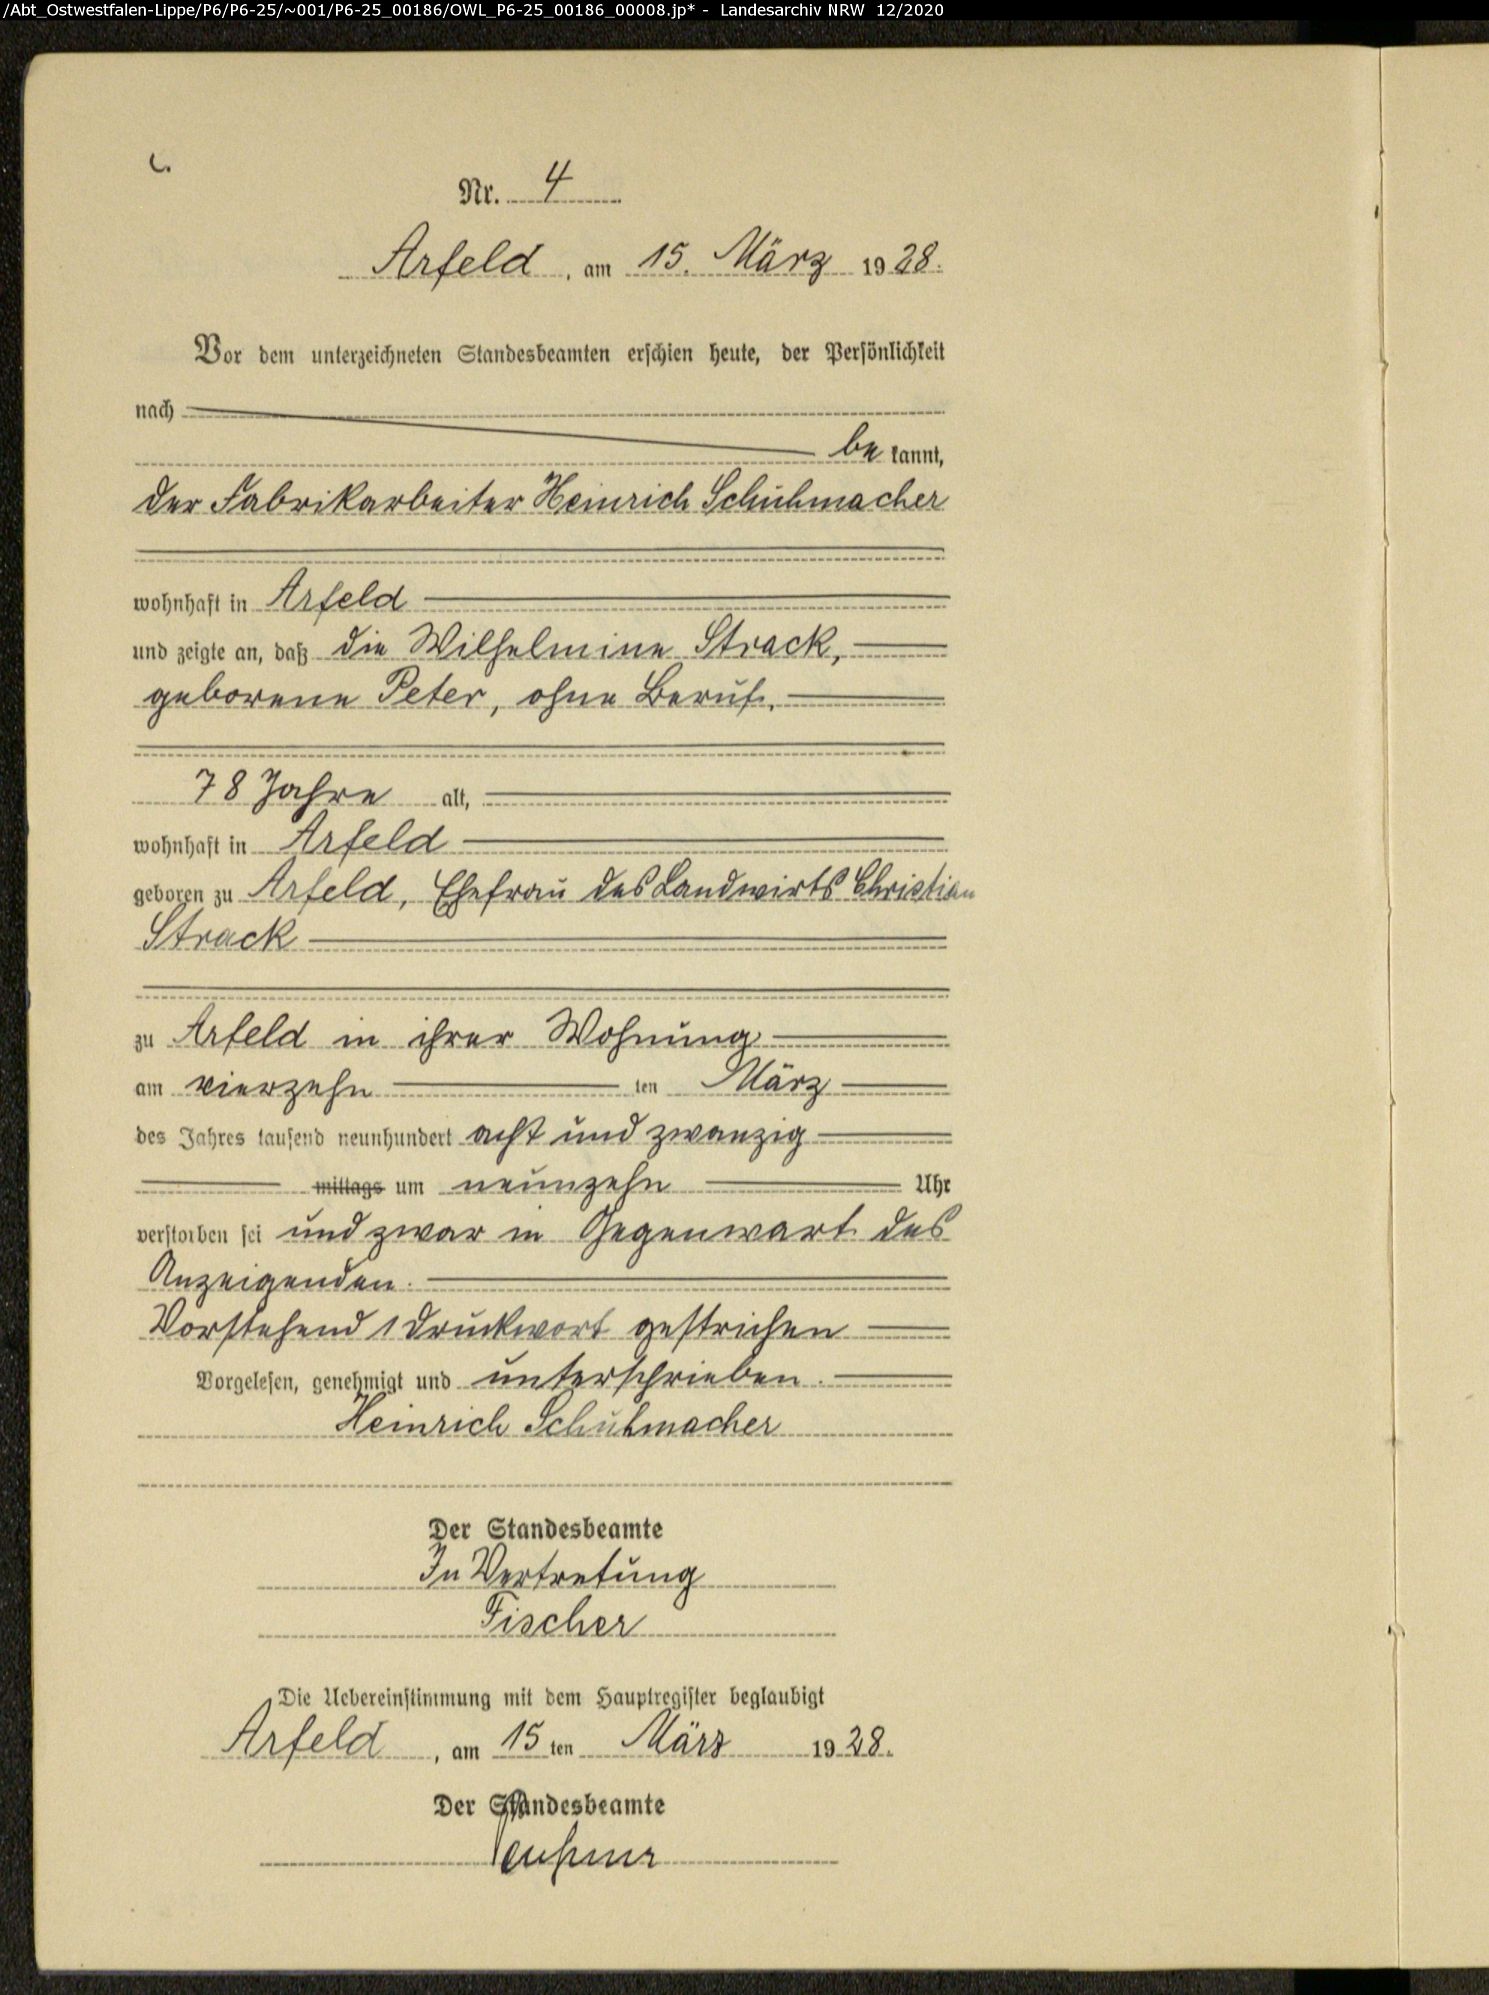 /Abt_Ostwestfalen-Lippe/P6/P6-25/~001/P6-25_00186/OWL_P6-25_00186_00008.jp* - Landesarchiv NRW 12/2020
Nr. 4
Arfeld, am 15. März 1928.
Vor dem unterzeichneten Standesbeamten erschien heute, der Persönlichkeit
nach
be kannt,
der Fabrikarbeiter Heinrich Schuhmacher
wohnhaft in Arfeld
und zeigte an, daß die Wilhelmine Strack,
geborene Peter, ohne Beruf,
78 Jahre alt,
wohnhaft in Arfeld
geboren zu Arfeld, Ehefrau des Landwirts Christian
Strack
zu Arfeld in ihrer Wohnung
am vierzehn ten März
des Jahres tausend neunhundert acht und zwanzig
mittags um neunzehn Uhr
verstorben sei und zwar in Gegenwart des
Anzeigenden.
Vorstehend 1 Druckwort gestrichen
Vorgelesen, genehmigt und unterschrieben.
Heinrich Schuhmacher
Der Standesbeamte
In Vertretung
Fischer
Die Uebereinstimmung mit dem Hauptregister beglaubigt
Arfeld, am 15 ten März 1928.
Der Standesbeamte